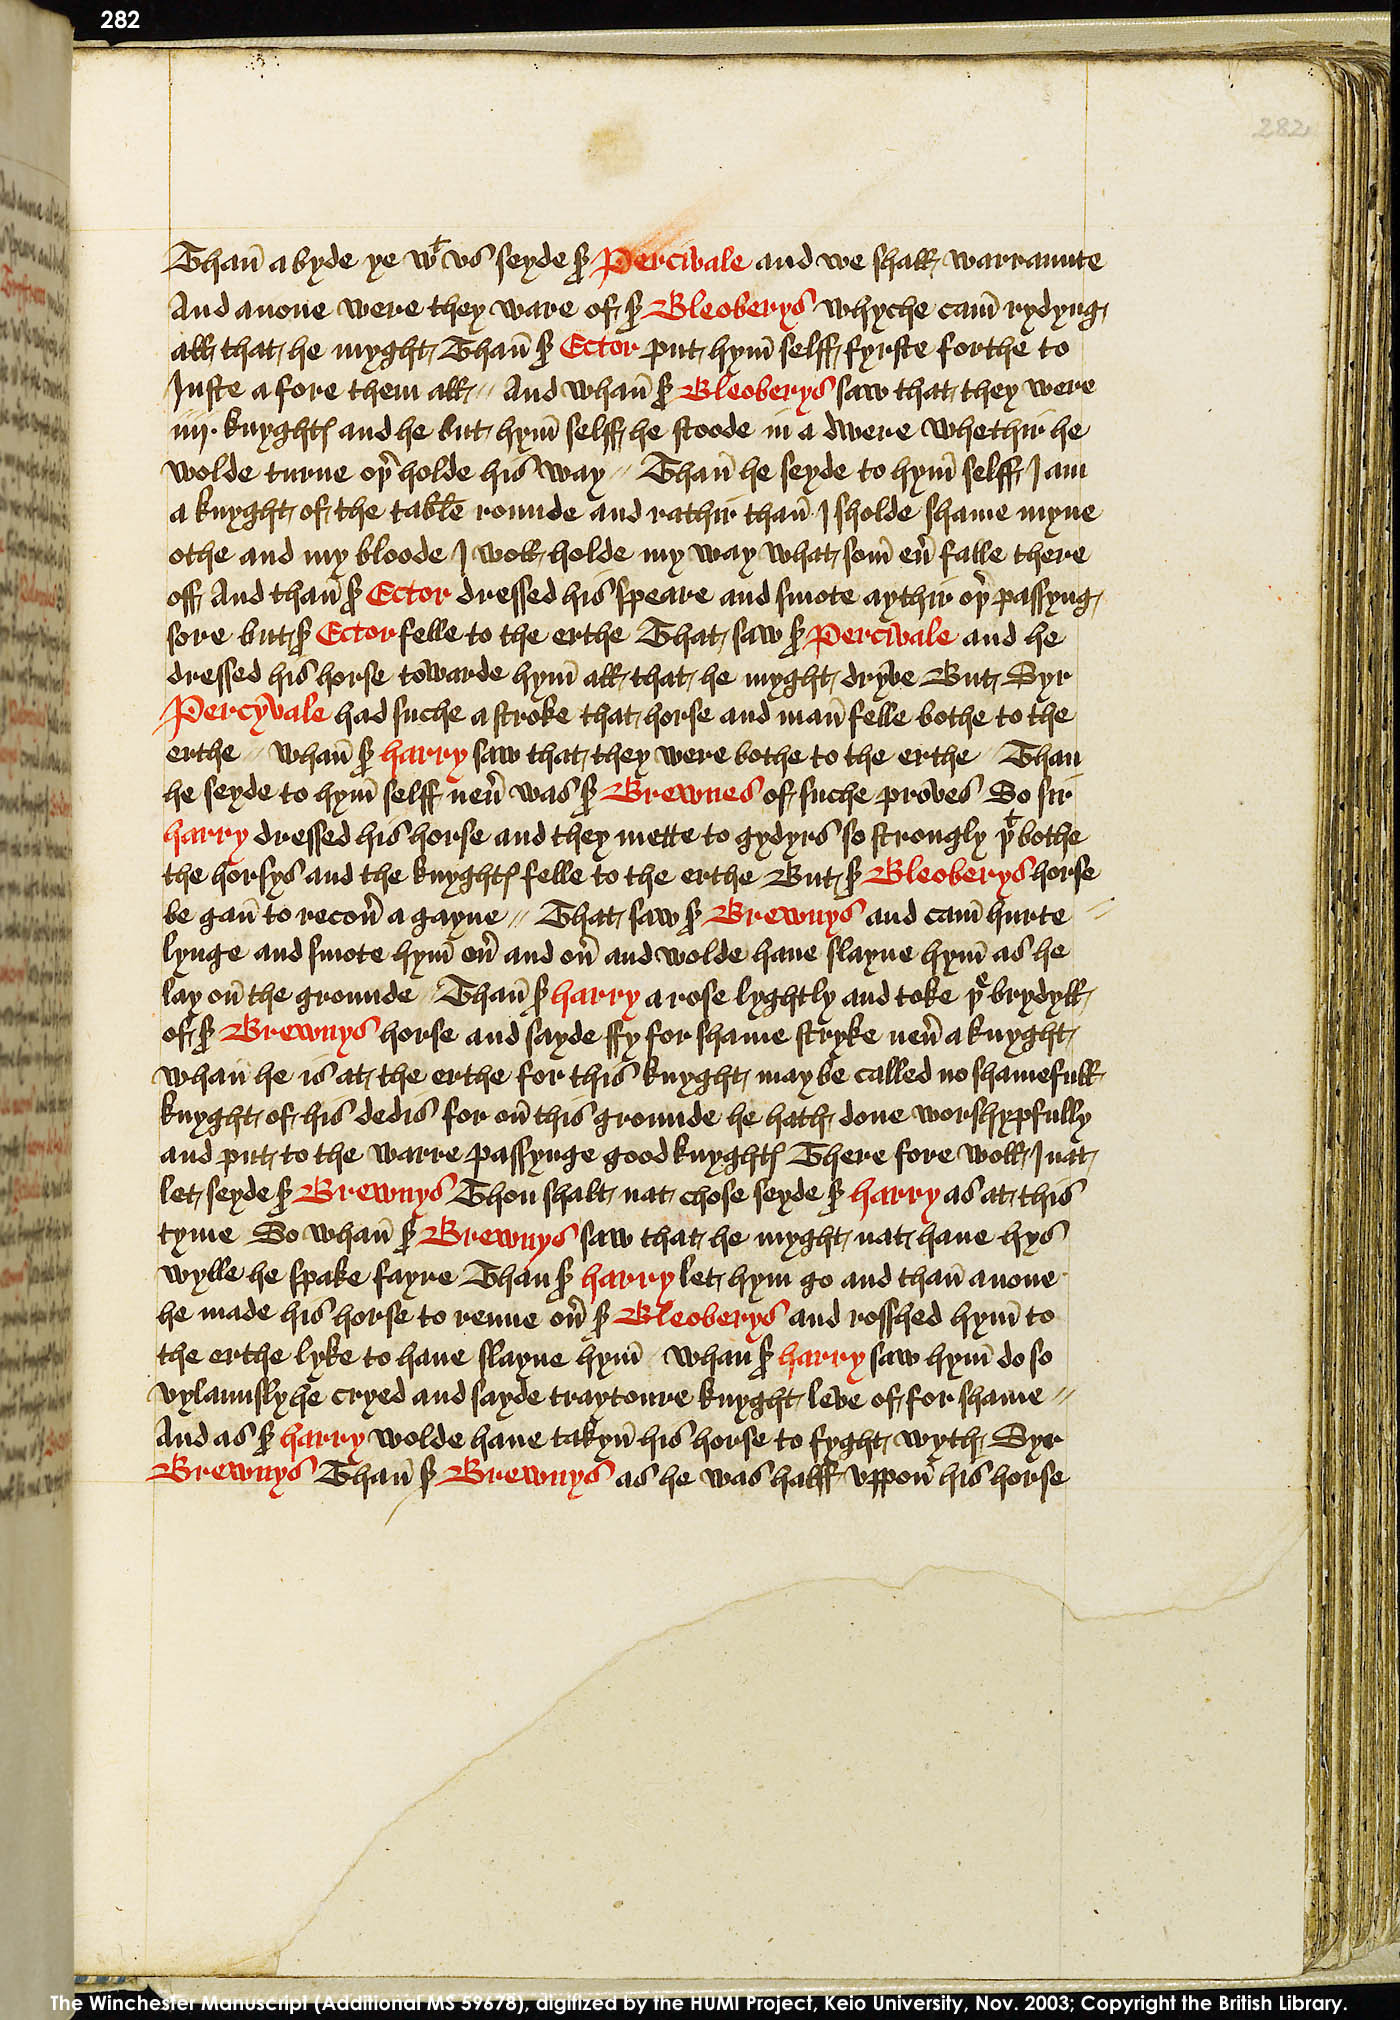 282
282
Thañ a byde ye wͭ vs seyde sꝛ Percivale and we shall warraunte
And anone were they ware of sꝛ Bleoberys whyche cam̃ rydyng
all that he myght Thañ sꝛ Ector put hym̃ selff fyrste forthe to
Juste a fore them all // And whañ sꝛ Bleoberys saw that they were
iiij. knyghtꝭ and he but hym̃ selff he stoode in a dwere whethir he
wolde turne oꝑ̃ holde his way // Thañ he seyde to hym̃ selff I am
a knyght of the table rounde and rathir thañ I sholde shame myne
othe and my bloode I woll holde my way what som̃ eũ falle there
off And thañ sꝛ Ector dressed his speare and smote aythir oꝑ̃ passyng
sore but sꝛ Ector felle to the erthe That saw sꝛ Percivale and he
dressed his horse towarde hym̃ all that he myght dryve But Syr
Percyvale had suche a stroke that horse and mañ felle bothe to the
erthe // Whañ sꝛ harry saw that they were bothe to the erthe // Than
he seyde to hym̃ selff neũ was sꝛ Brewnes of suche proves So sir
harry dressed his horse and they mette to gydyrs so strongly yͭ bothe
the horsys and the knyghtꝭ felle to the erthe But sꝛ Bleoberys horse
be gañ to recoũ a gayne // That saw sꝛ Brewnys and cam̃ hurte //
lynge and smote hym̃ oũ and oũ and wolde haue slayne hym̃ as he
lay oñ the grounde // Thañ sꝛ harry a rose lyghtly and toke yͤ brydyll
of sꝛ Brewnys horse and sayde ffy for shame stryke neũ a knyght
whan he is at the erthe for this knyght may be called no shamefull
knyght of his dedis for oñ this grounde he hath done worshypfully
and put to the warre passynge good knyghtꝭ There fore woll I nat
let seyde sꝛ Brewnys Thou shalt nat chose seyde sꝛ harry as at this
tyme So whañ sꝛ Brewnys saw that he myght nat haue hys
wylle he spake fayre Than sꝛ harry let hym go and thañ anone
he made his horse to renne oũ sꝛ Bleoberys and rosshed hym̃ to
the erthe lyke to haue slayne hym̃ // Whan sꝛ harry saw hym̃ do so
vylaunsly he cryed and sayde traytoure knyght leve of for shame //
And as sꝛ harry wolde haue takyñ his horse to fyght wyth Syr
Brewnys Thañ sꝛ Brewnys as he was halff vppoñ his horse
The Winchester Manuscript (Additional MS 59678), digitized by the HUMI Project, Keio University, Nov. 2003; Copyright the British Library.